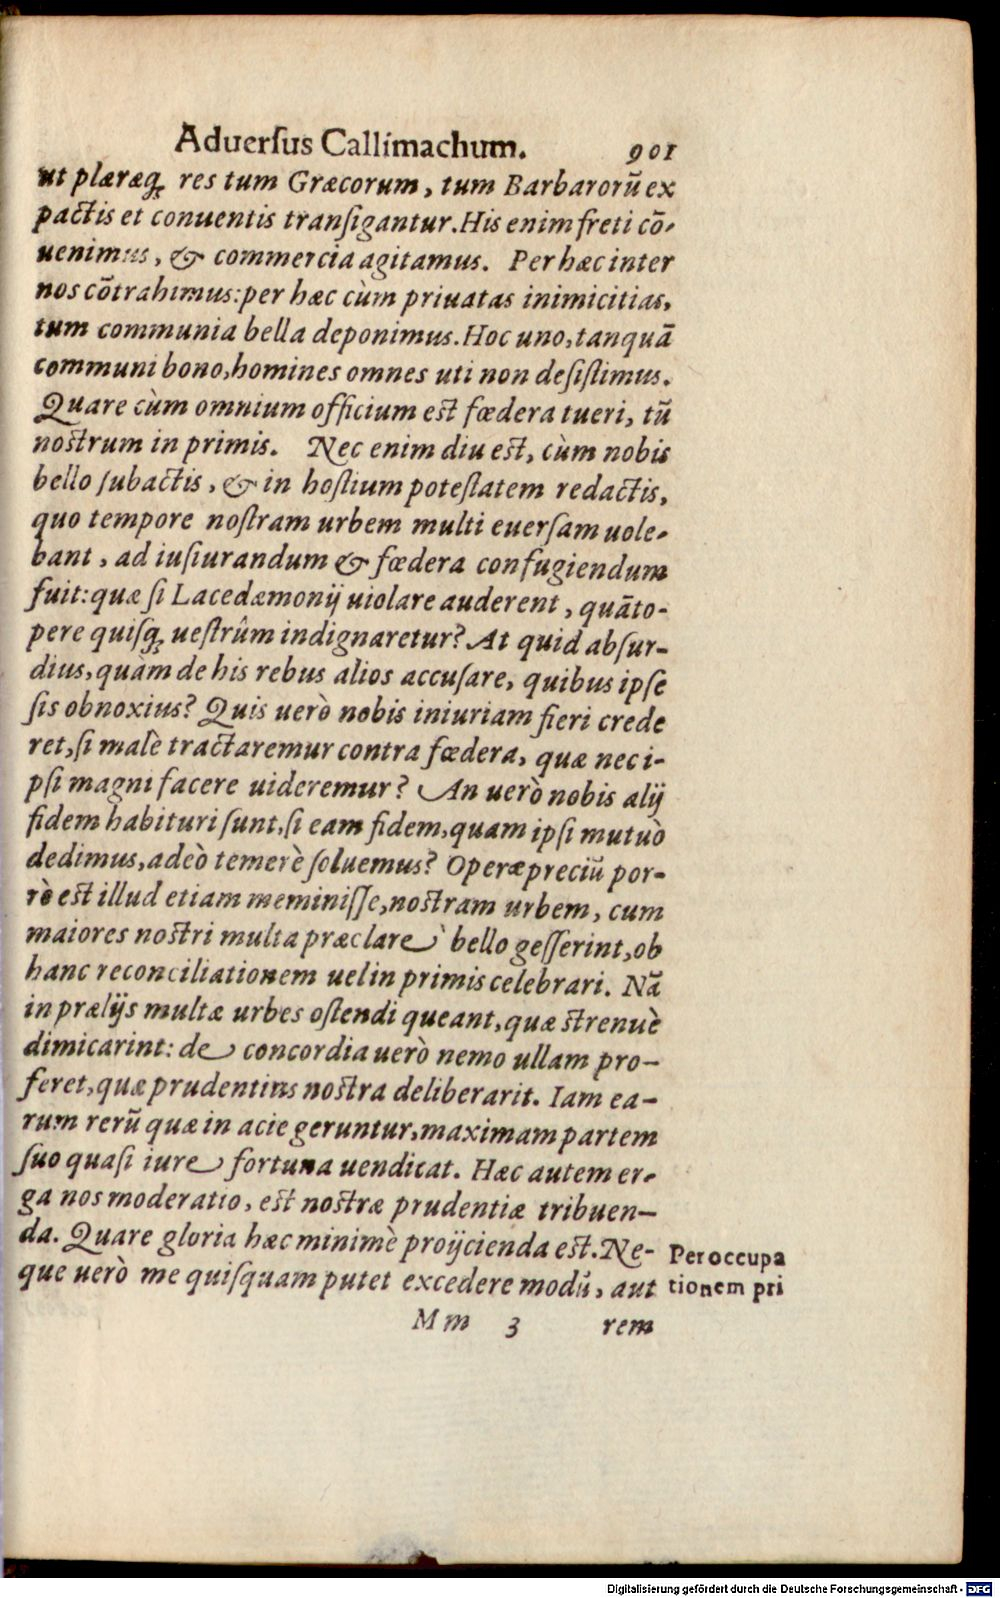 Aduerſus Callimachum. 901
ut plæræq; res tum Græcorum, tum Barbarorũ ex
pactis et conuentis tranſigantur. His enim freti cõ-
uenimus, & commercia agitamus. Per hæc inter
nos cõtrahimus: per hæc cùm priuatas inimicitias,
tum communia bella deponimus. Hoc uno, tanquã
communi bono, homines omnes uti non deſiſtimus.
Quare cùm omnium officium eſt fœdera tueri, tũ
noſtrum in primis. Nec enim diu eſt, cùm nobis
bello ſubactis, & in hoſtium poteſtatem redactis,
quo tempore noſtram urbem multi euerſam uole-
bant, ad iuſiurandum & fœdera confugiendum
fuit: quæ ſi Lacedæmonij uiolare auderent, quãto-
pere quiſq; ueſtrûm indignaretur? At quid abſur-
dius, quàm de his rebus alios accuſare, quibus ipſe
ſis obnoxius? Quis uerò nobis iniuriam fieri crede
ret, ſi malè tractaremur contra fœdera, quæ nec i-
pſi magni facere uideremur? An uerò nobis alij
fidem habituri ſunt, ſi eam fidem, quam ipſi mutuò
dedimus, adeò temerè ſoluemus? Operæpreciũ por-
rò eſt illud etiam meminiſſe, noſtram urbem, cum
maiores noſtri multa præclarè bello geſſerint, ob
hanc reconciliationem uel in primis celebrari. Nã
in prælijs multæ urbes oſtendi queant, quæ ſtrenuè
dimicarint: de concordia uerò nemo ullam pro-
feret, quæ prudentius noſtra deliberarit. Iam ea-
rum rerũ quæ in acie geruntur, maximam partem
ſuo quaſi iure fortuna uendicat. Hæc autem er-
ga nos moderatio, eſt noſtræ prudentiæ tribuen-
da. Quare gloria hæc minimè proijcienda eſt. Ne-
que uerò me quiſquam putet excedere modũ, aut
Per occupa
tionem pri
Mm 3 rem
Digitalisierung gefördert durch die Deutsche Forschungsgemeinschaft - DFG